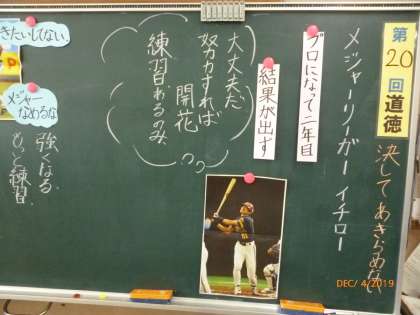 第20回道徳
決してあきらめない
メジャーリーガー イチロー
プロになって二年目
結果が出ず
大丈夫だ
努力すれば
開花
練習あるのみ
きたいしてない
メジャーなめるな
強くなる
もっと練習
DEC/ 4/2019